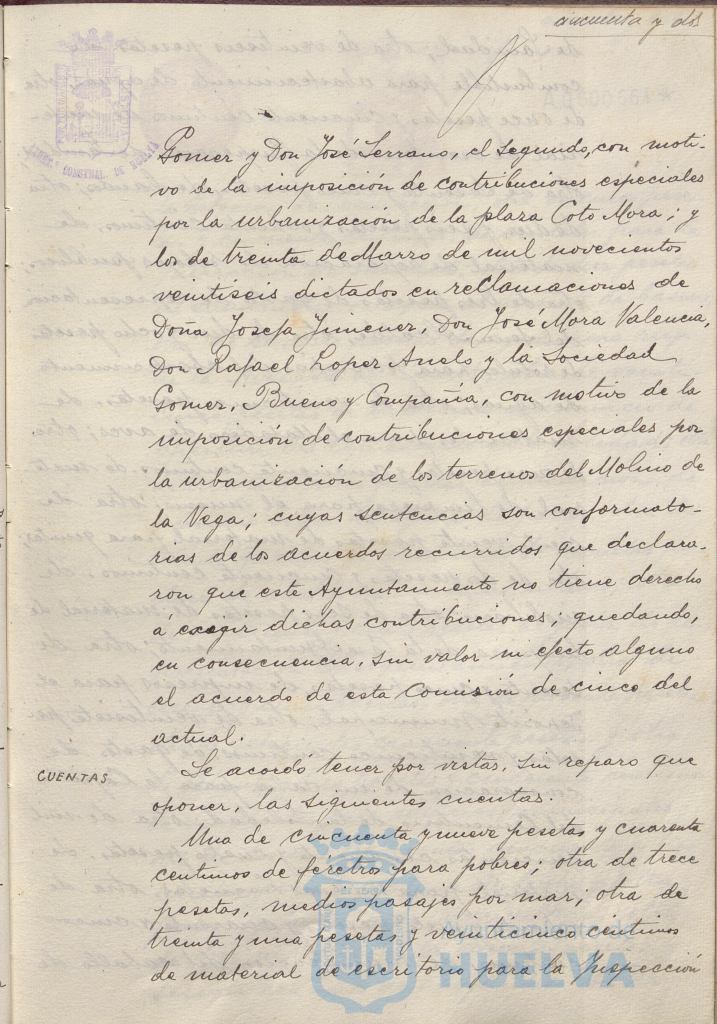 cincuenta y dos
Gomez y Don José Serrano, el segundo, con moti-
vo de la imposición de contribuciones especiales
por la urbanización de la plaza Coto Mora; y
los de treinta de Marzo de mil novecientos
veintiseis dictados en reclamaciones de
Doña Josefa Jimenez, Don José Mora Valencia,
Don Rafael Lopez y la Sociedad
Gomez, Bueno y Compañia, con motivo de la
imposición de contribuciones especiales por
la urbanización de los terrenos del Molino de
la Vega; cuyas sentencias son conformato-
rias de los acuerdos recurridos que declara-
ron que este Ayuntamiento no tiene derecho
á exigir dichas contribuciones; quedando,
en consecuencia, sin valor ni efecto alguno
el acuerdo de esta Comisión de cinco del
actual.
CUENTAS
Se acordó tener por vistas, sin reparo que
oponer, las siguientes cuentas.
Una de cincuenta y nueve pesetas y cuarenta
céntimos de féretros para pobres; otra de trece
pesetas, medios pasajes por mar; otra de
treinta y una pesetas y veinticinco céntimos
de material de escritorio para la Inspección
Ayuntamiento de
HUELVA